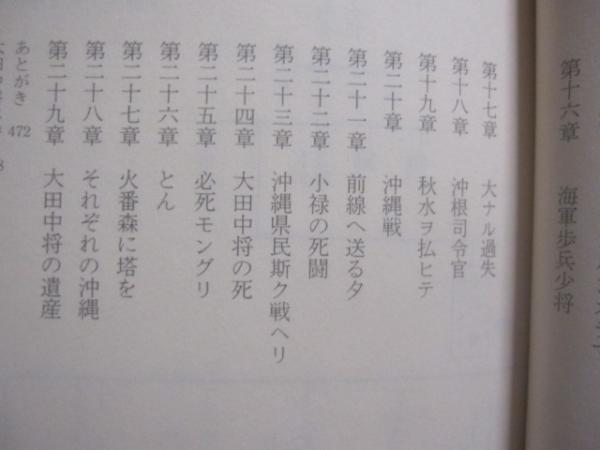 第十六章 海軍歩兵少将
第十七章 大ナル過失
第十八章 沖根司令官
第十九章 秋水ヲ払ヒテ
第二十章 沖縄戦
第二十一章 前線へ送る夕
第二十二章 小禄の死闘
第二十三章 沖縄県民斯ク戦ヘリ
第二十四章 大田中将の死
第二十五章 必死モングリ
第二十六章 とん
第二十七章 火番森に塔を
第二十八章 それぞれの沖縄
第二十九章 大田中将の遺産
あとがき 472